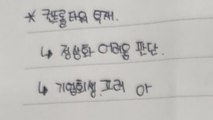 * 컨트롤타워 부재.
↳ 정상화 어려움 판단.
↳ 기업회생. 고려